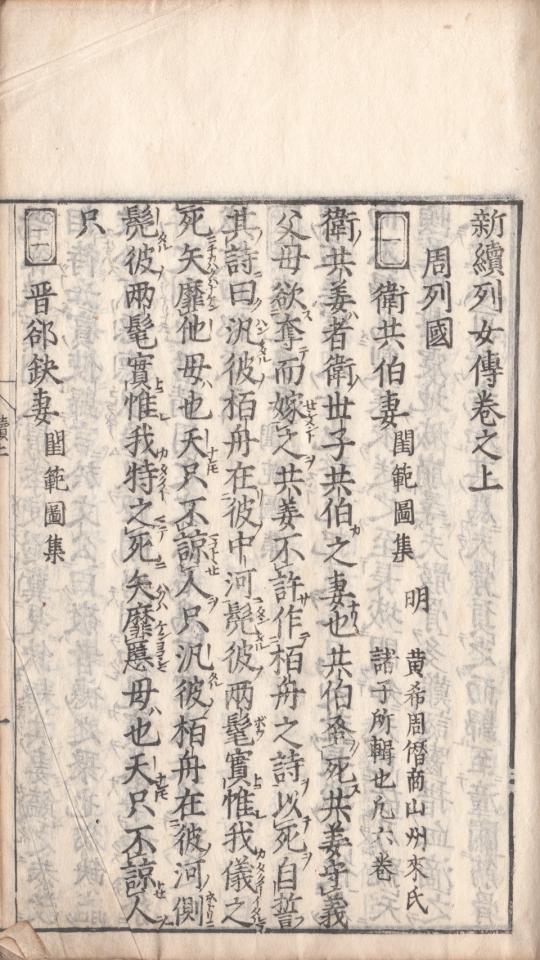 新續列女傳卷之上
周列國
一 衛共伯妻 閨範圖集 明 黄希周僭商山州來氏
諸子所輯也凡六卷
衛共姜者衛世子共伯之妻也共伯蚤死共姜守義
父母欲奪而嫁之共姜不許作栢舟之詩以死自誓
其詩曰汎彼栢舟在彼中河髧彼兩髦實惟我儀之
死矢靡他母也天只不諒人只汎彼栢舟在彼河側
髧彼兩髦實惟我特之死矢靡慝母也天只不諒人
只
二 晋郤缺妻 閨範圖集